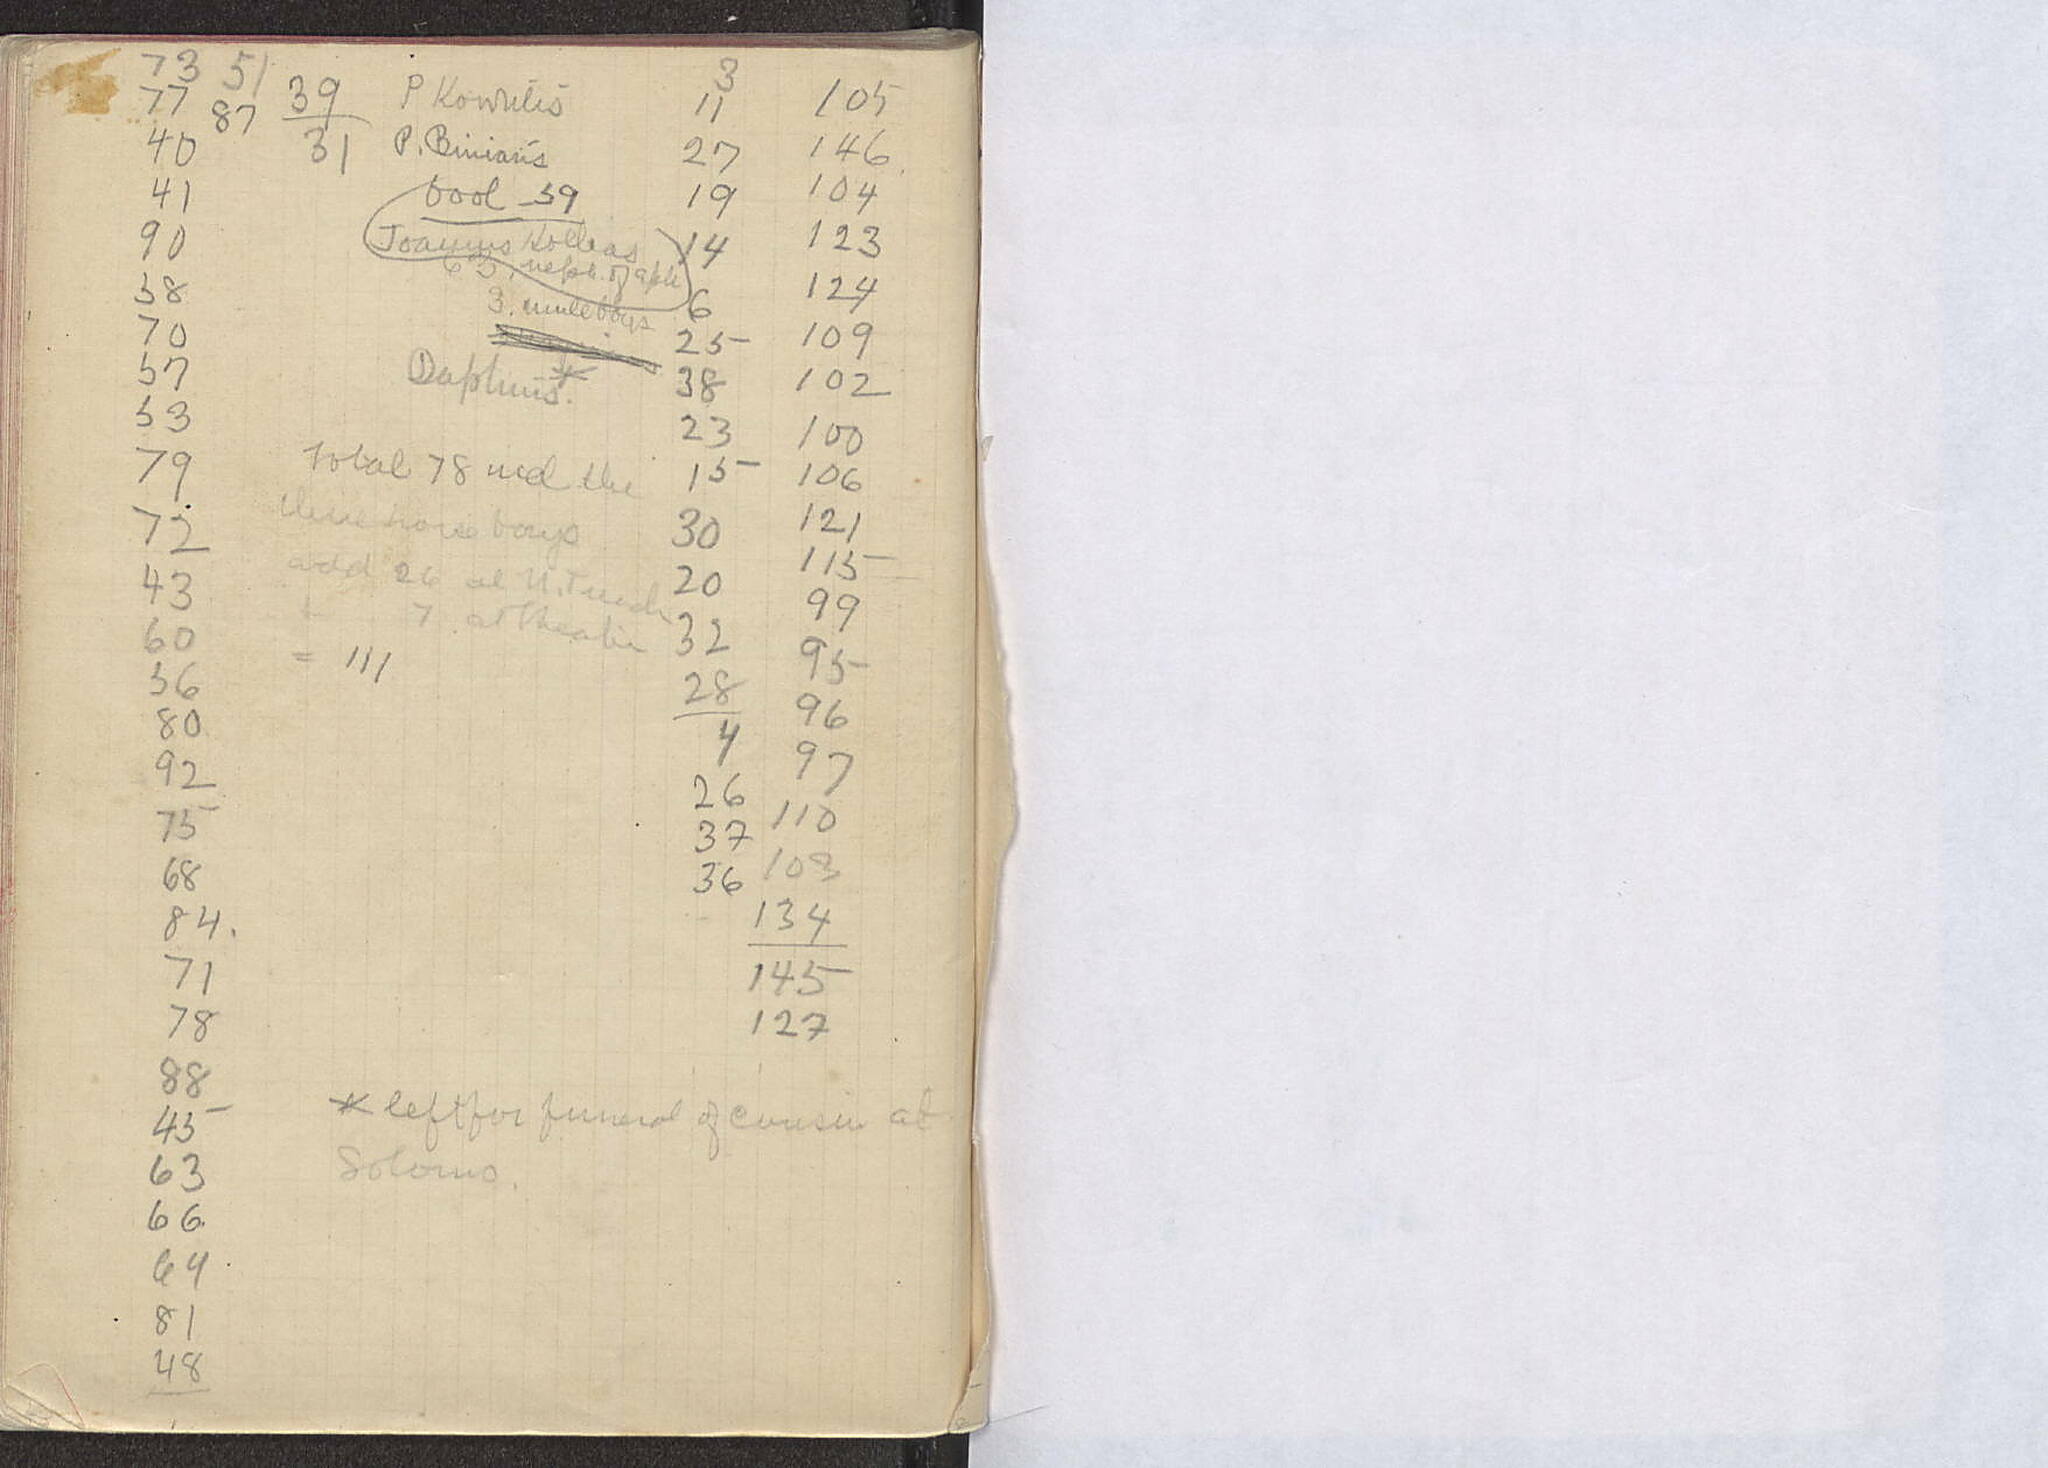 73 51
77 87 39 P 3
40 31 P. 11 105
41 27 146
90 59 19 104
38 14 123
70 3. muleboys 6 124
57 25 109
53 Daphnis*. 38 102
79 23 100
72 Total 78 incl the 15 106
43 three boys 30 121
60 add 26 at 20 115
56 7 at theatre 32 99
80 = 111 28 95
92 4 96
75 26 97
68 37 110
84. 36 103
71 134
78 145
88 127
45 * left for funeral of cousin at
63 Solomo.
66
64
81
48